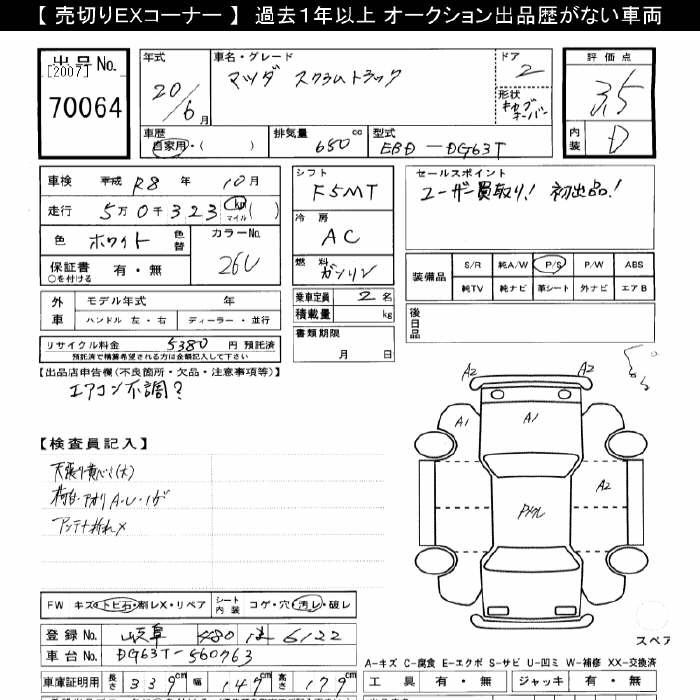 【 売切りEXコーナー 】 過去1年以上 オークション出品歴がない車両
出品No.
[2007]
70064
年式
20/6月
車名・グレード
マツダ スクラムトラック
ドア
2
形状
キャブオーバー
評価点
3.5
内装
D
車歴
自家用・( )
排気量
650 cc
型式
EBD-DG63T
車検 平成 R8 年 10月
走行 5万0千323 km マイル ( )
色 ホワイト 色替
カラーNo.
26U
保証書 ○を付ける 有・無
外車
モデル年式 年
ハンドル 左・右 ディーラー・並行
リサイクル料金 5380 円 預託済
預託済で積算希望される方は金額記入して下さい
シフト
F5MT
冷房
AC
燃料
ガソリン
乗車定員 2 名
積載量 kg
書類期限
月 日
セールスポイント
ユーザー買取り! 初出品!
装備品
S/R 純A/W P/S P/W ABS
純TV 純ナビ 革シート 外ナビ エアB
後日品
【出品店申告欄(不良箇所・欠品・注意事項等)】
エアコン不調?
【検査員記入】
荷台・アオリA・U・イガ
アンテナ折れX
A2
A2
A1
A1
A2
FW キズ・トビ石・割レX・リペア
シート内装 コゲ・穴・汚レ・破レ
登録No. 岐阜 480 は 6122
車台No. DG63T-560763
車庫証明用 長さ 339cm 幅 147cm 高さ 179cm
スペア
A-キズ C-腐食 E-エクボ S-サビ U-凹ミ W-補修 XX-交換済
工具 有・無 ジャッキ 有・無